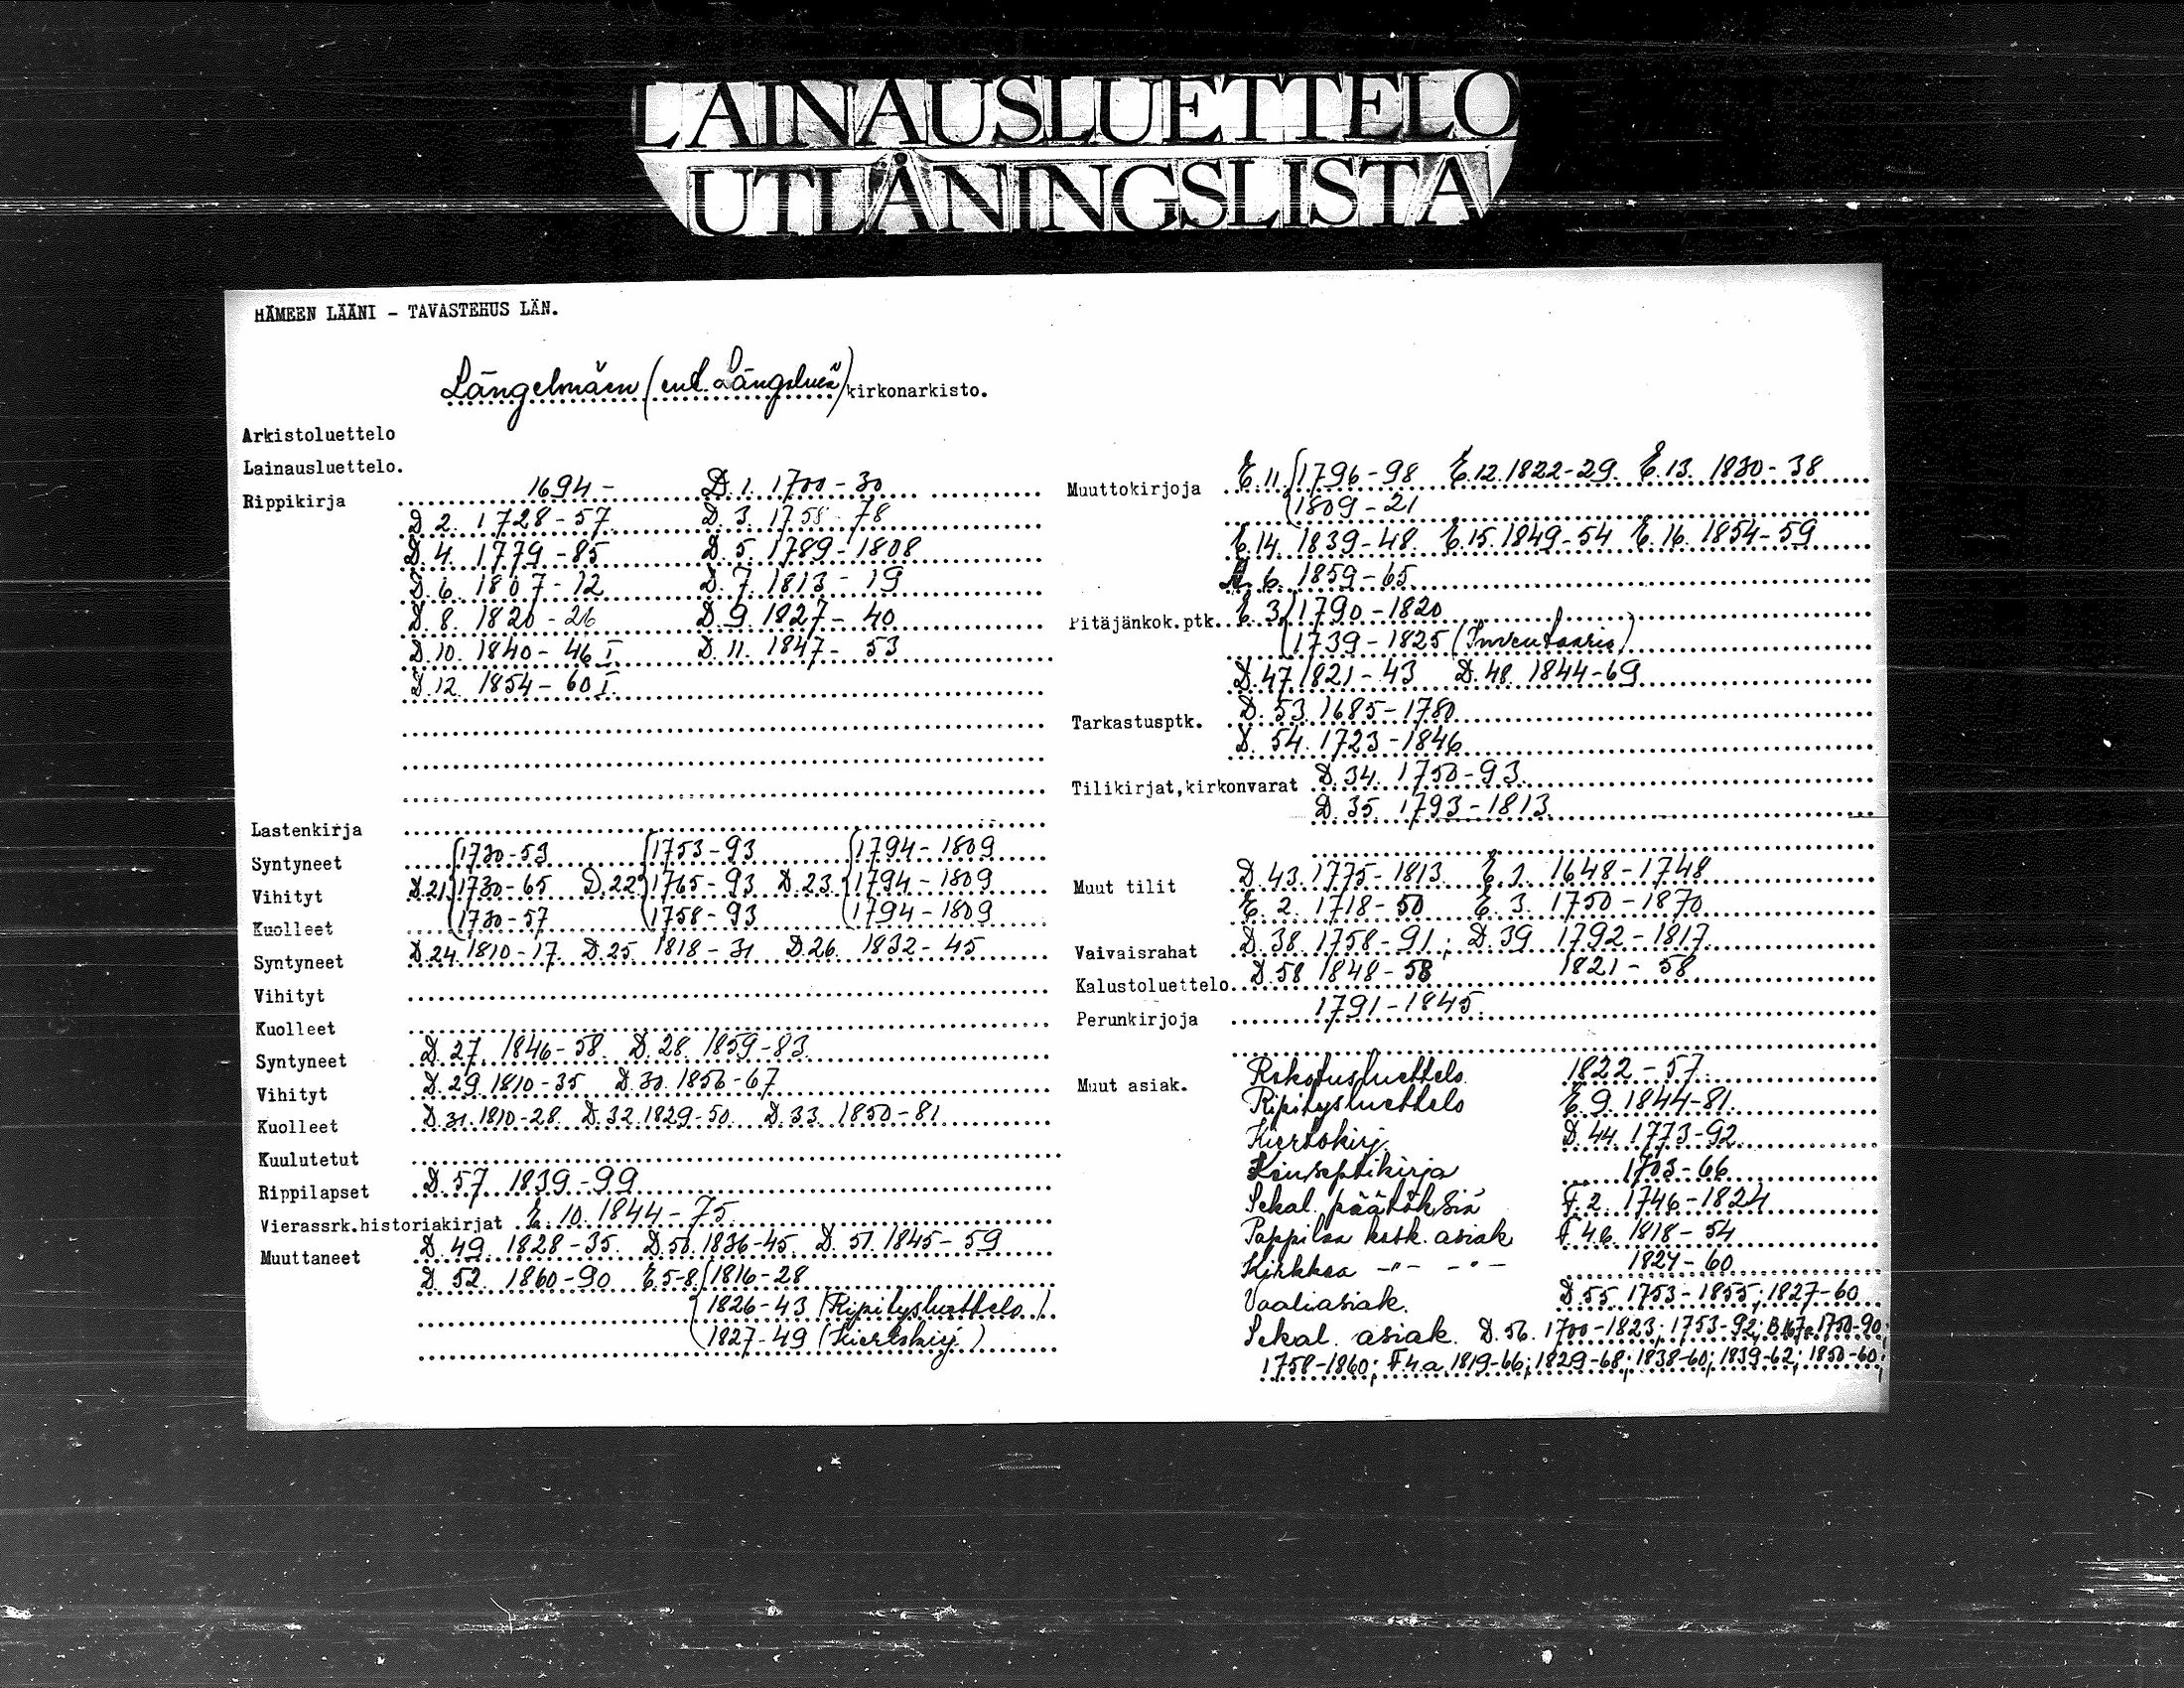 LAINAUSLUETTELO
UTLÅNINGSLISTA
HÄMEEN LÄÄNI - TAVASTEHUS LÄN.
Längelmäen (ent. Längelmä) kirkonarkisto.
Arkistoluettelo
Lainausluettelo.
Rippikirja 1694- D.1. 1700-30
D 2. 1728-57 D. 3. 1758-78
D. 4. 1779-85 D. 5. 1789-1808
D. 6. 1807-12 D. 7. 1813-19
D. 8. 1820-26 D. 9. 1827-40
D. 10. 1840-46 I D. 11. 1847-53
D. 12. 1854-60 I.
Lastenkirja
Syntyneet 1730-53 1753-93 1794-1809
Vihityt D.21. 1730-65 D.22. 1765-93 D.23. 1794-1809
Kuolleet 1730-57 1758-93 1794-1809
Syntyneet D.24. 1810-17. D.25. 1818-31 D.26. 1832-45
Vihityt
Kuolleet
Syntyneet D.27. 1846-58. D.28. 1859-83.
Vihityt D.29. 1810-35 D.30. 1856-67
Kuolleet D.31. 1810-28. D.32. 1829-50. D.33. 1850-81.
Kuulutetut
Rippilapset D.57. 1839-99
Vierassrk.historiakirjat E.10. 1844-75.
Muuttaneet D.49. 1828-35. D.50. 1836-45. D.51. 1845-59
D.52. 1860-90 E.5-8. 1816-28
1826-43 (Ripitysluettelo)
1827-49 (Kiertokirj.)
Muuttokirjoja E.11. 1796-98 E.12. 1822-29. E.13. 1830-38
1809-21
E.14. 1839-48. E.15. 1849-54 E.16. 1854-59
6. 1859-65
Pitäjänkok.ptk. E.3. 1790-1820
1739-1825 (Inventaario)
D.47 1821-43 D.48. 1844-69
Tarkastusptk. D.53. 1685-1780
D.54. 1723-1846
Tilikirjat,kirkonvarat D.34. 1750-93.
D.35. 1793-1813.
Muut tilit D.43. 1775-1813. E.1. 1648-1748
E.2. 1718-50 E.3. 1750-1870
Vaivaisrahat D.38. 1758-91; D.39 1792-1817
Kalustoluettelo. D.58 1848-58 1821-58
Perunkirjoja 1791-1845.
Muut asiak. Rokotusluettelo 1822-57.
Ripitysluettelo E.9. 1844-81.
Kiertokirj. D.44. 1773-92
Konseptikirja 1703-66
Sekal. päätöksiä F.2. 1746-1824
Pappilaa kosk. asiak F.4.b. 1818-54
Kirkkoa -"- -"- 1824-60
Vaaliasiak. D.55. 1753-1855; 1827-60
Sekal. asiak. D.56. 1700-1823; 1753-92; 1750-90;
1758-1860; F.4.a. 1819-66; 1829-68; 1838-60; 1839-62; 1850-60;